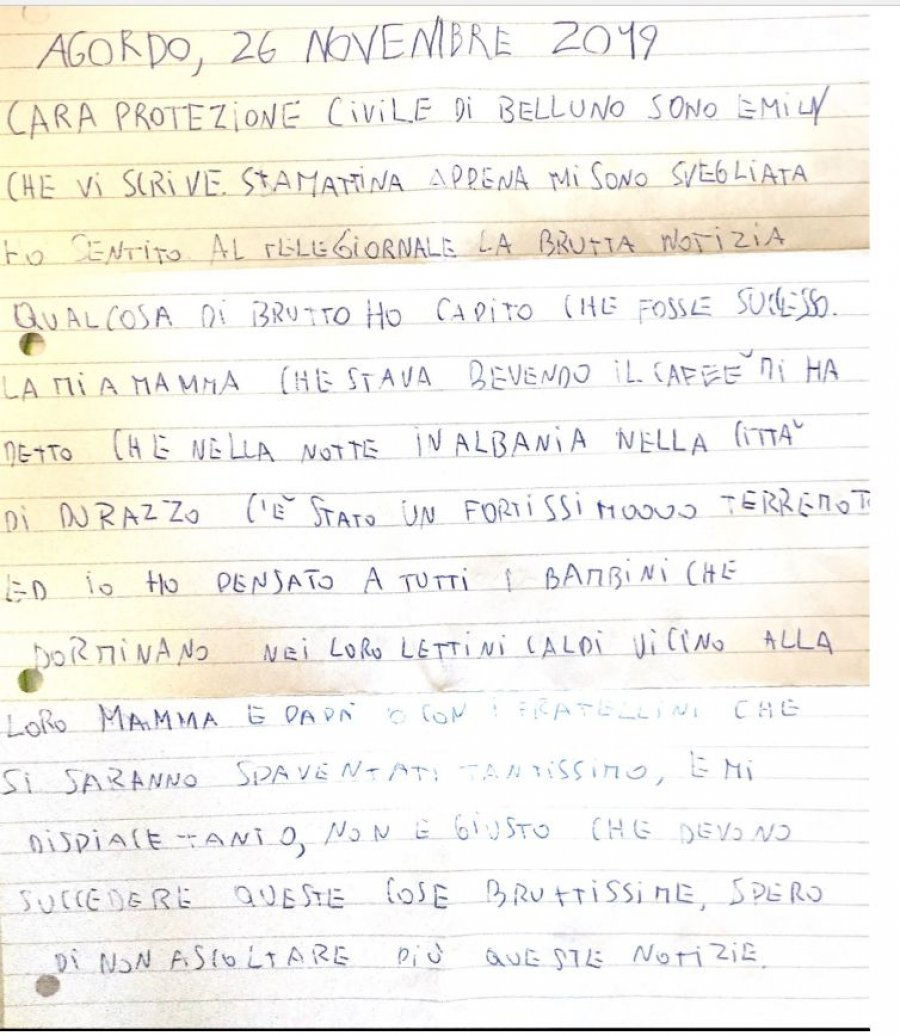 AGORDO, 26 NOVEMBRE 2019
CARA PROTEZIONE CIVILE DI BELLUNO SONO EMILY
CHE VI SCRIVE. STAMATTINA APPENA MI SONO SVEGLIATA
HO SENTITO AL TELEGIORNALE LA BRUTTA NOTIZIA
QUALCOSA DI BRUTTO HO CAPITO CHE FOSSE SUCCESSO.
LA MIA MAMMA CHE STAVA BEVENDO IL CAFFÈ MI HA
DETTO CHE NELLA NOTTE IN ALBANIA NELLA CITTÀ
DI DURAZZO C'È STATO UN FORTISSIMOOOO TERREMOTO
ED IO HO PENSATO A TUTTI I BAMBINI CHE
DORMINANO NEI LORO LETTINI CALDI VICINO ALLA
LORO MAMMA E PAPÀ O CON I FRATELLINI CHE
SI SARANNO SPAVENTATI TANTISSIMO, E MI
DISPIACE TANTO, NON È GIUSTO CHE DEVONO
SUCCEDERE QUESTE COSE BRUTTISSIME, SPERO
DI NON ASCOLTARE PIÙ QUESTE NOTIZIE.